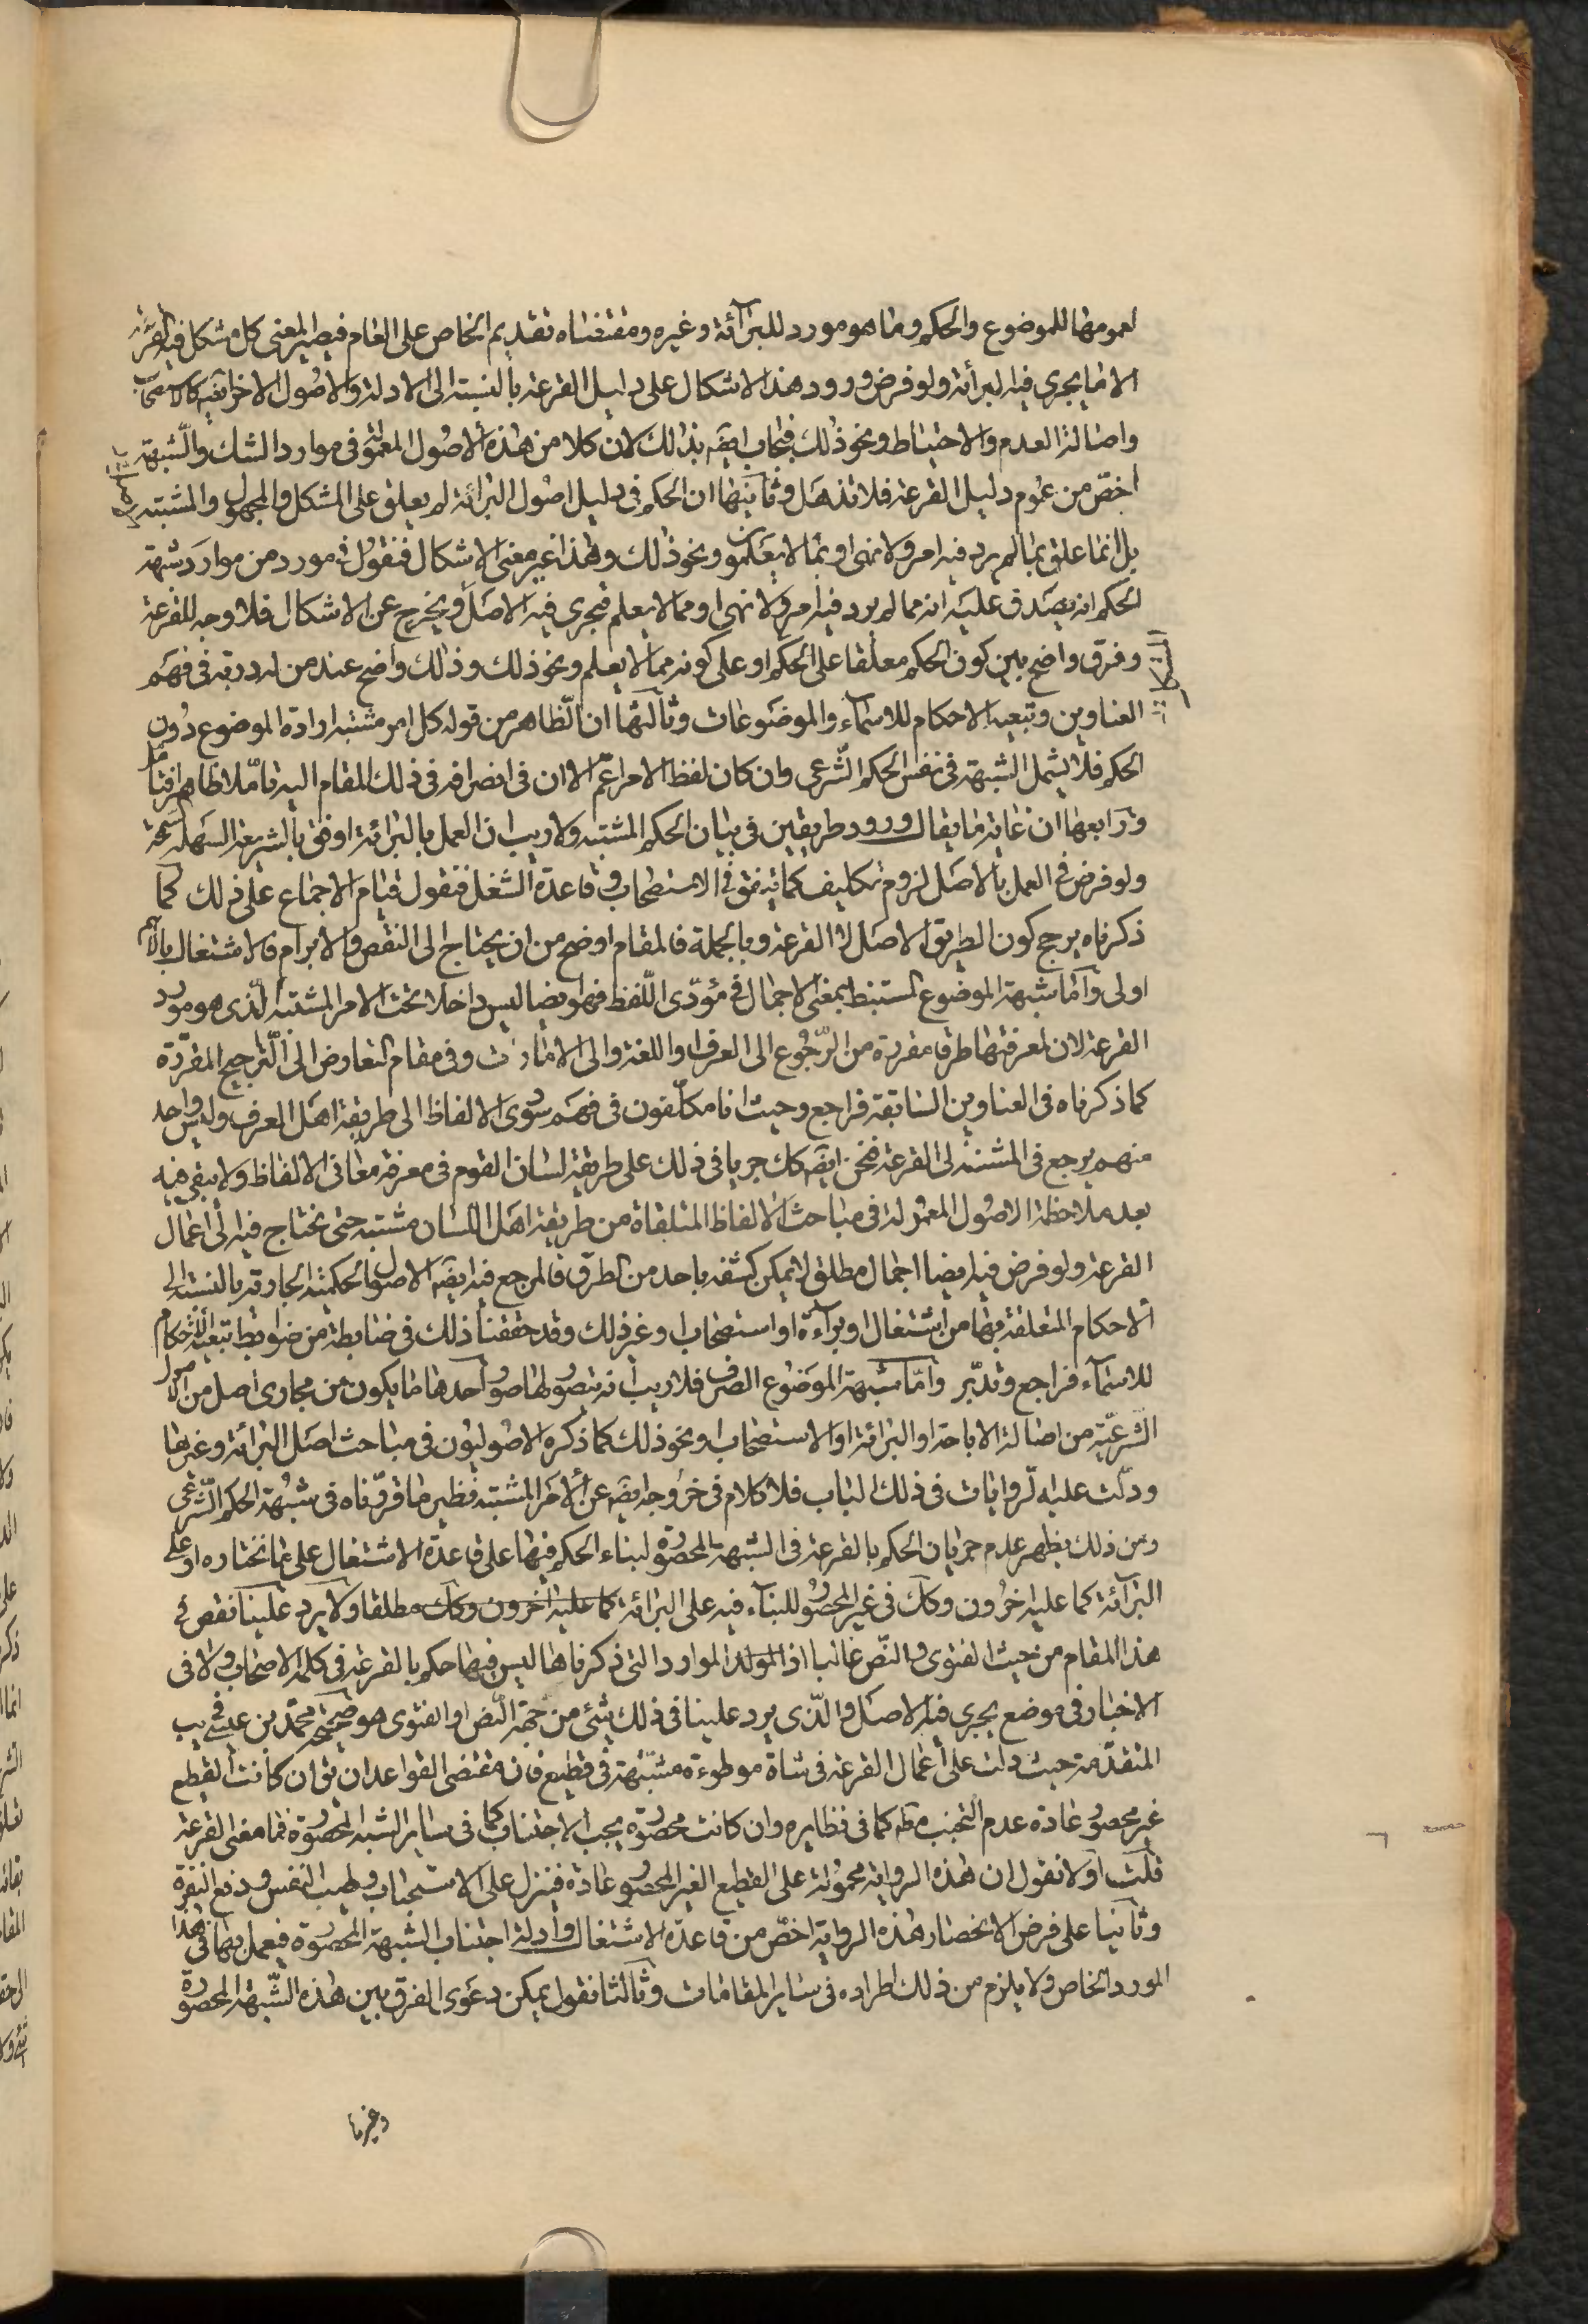 لعمومها للموضوع والحكم وما هو مورد للبرائة وغيره ومقتضاه تقديم الخاص على العام فيصير المعنى كل مشكل فيه القرعة
الا ما يجري فيه البرائة ولو فرض ورود هذا الاشكال على دليل القرعة بالنسبة الى الادلة والاصول الاخر ايضه كالاستصحاب
واصالة العدم والاحتياط ونحو ذلك فيجاب ايضه بذلك لان كلا من هذه الاصول المعمولة في موارد الشك والشبهة
اخص من عموم دليل القرعة فلا تذهل وثانيها ان الحكم في دليل اصول البرائة لم يعلق على المشكل والمجهول والمشتبه
بل انما علق بما لم يرد فيه امر ولا نهى او بما لا يعلمون ونحو ذلك وهذا غير معنى الاشكال فنقول في مورد من موارد شبهة
الحكم انه يصدق عليه انه مما لم يرد فيه امر ولا نهى او مما لا يعلم فيجري فيه الاصل ويخرج عن الاشكال فلا وجه للقرعة
وفرق واضح بين كون الحكم معلقا على الحكم او على كونه مما لا يعلم ونحو ذلك وذلك واضح عند من له دربة في فهم
العناوين وتبعية الاحكام للاسماء والموضوعات وثالثها ان الظاهر من قوله كل امر مشتبه ارادة الموضوع دون
الحكم فلا يشمل الشبهة في نفس الحكم الشرعي وان كان لفظ الامر اعم الا ان في انصرافه في ذلك المقام اليه تاملا ظاهرا فتامل
ورابعها ان غاية ما يقال ورود طريقين في بيان الحكم المشتبه ولا ريب ان العمل بالبرائة اوفق بالشريعة السهلة سمحة
ولو فرض في العمل بالاصل لزوم تكليف كما يتفق في الاستصحاب وقاعدة الشغل فنقول قيام الاجماع على ذلك كما
ذكرناه يرجح كون الطريق الاصل لا القرعة وبالجملة فالمقام اوضح من ان يحتاج الى النقض والابرام فالاشتغال بالاهم
اولى واما شبهة الموضوع المستنبط بمعنى الاجمال في مؤدى اللفظ فهو ايضا ليس داخلا تحت الامر المشتبه الذي هو مورد
القرعة لان لمعرفتها طرقا مقررة من الرجوع الى العرف واللغة والى الامارات وفي مقام التعارض الى التراجيح المقررة
كما ذكرناه في العناوين السابقة فراجع وحيث انا مكلفون في فهم سوى الالفاظ الى طريقة اهل العرف وليس واحد
منهم يرجع في المشتبه الى القرعة فنحن ايضه كك جريا في ذلك على طريقة لسان القوم في معرفة معاني الالفاظ ولا يبقى فيه
بعد ملاحظة الاصول المعمولة في مباحث الالفاظ المتلقاة من طريقة اهل اللسان مشتبه حتى يحتاج فيه الى اعمال
القرعة ولو فرض فيه ايضا اجمال مطلق لا يمكن كشفه باحد من الطرق فالمرجع فيه ايضه الاصول الحكمية الجارية بالنسبة الى
الاحكام المتعلقة بها من اشتغال او براءة او استصحاب او غير ذلك وقد حققنا ذلك في ضابطة من ضوابط تبعية الاحكام
للاسماء فراجع وتدبر واما شبهة الموضوع الصرف فلا ريب انه يتصور لها صور احدها ما يكون من مجاري اصل من الاصول
الشرعية من اصالة الاباحة او البرائة او الاستصحاب ونحو ذلك كما ذكره الاصوليون في مباحث اصل البرائة وغيرها
ودلت عليه الروايات في ذلك الباب فلا كلام في خروجه ايضه عن الامر المشتبه نظير ما قررناه في شبهة الحكم الشرعي
ومن ذلك يظهر عدم جريان الحكم بالقرعة في الشبهة المحصورة لبناء الحكم فيها على قاعدة الاشتغال على ما نختاره او على
البرائة كما عليه اخرون وكك في غير المحصور للبناء فيه على البرائة كما عليه اخرون وكك مطلقا ولا يرد علينا نقض في
هذا المقام من حيث الفتوى والنص غالبا اذ الموارد الموارد التي ذكرناها ليس فيها حكم بالقرعة في كلمة الاصحاب ولا في
الاخبار في موضع يجري فيه الاصل والذي يرد علينا في ذلك شئ من جهة النص او الفتوى هو صحيحة محمد بن عيسى في يب
المتقدمة حيث دلت على اعمال القرعة في شاة موطوءة مشتبهة في قطيع فان مقتضى القواعد ان يق ان كانت القطيع
غير محصور عادة عدم التجنب مطه كما في نظايره وان كانت محصورة يجب الاجتناب كما في ساير الشبه المحصورة فما معنى القرعة
قلت اولا نقول ان هذه الرواية محمولة على القطيع الغير المحصور عادة فينزل على الاستحباب وطيب النفس ودفع النفرة
وثانيا على فرض الانحصار هذه الرواية اخص من قاعدة الاشتغال وادلة اجتناب الشبهة المحصورة فيعمل بها في هذا
المورد الخاص ولا يلزم من ذلك اطراده في ساير المقامات وثالثا نقول يمكن دعوى الفرق بين هذه الشبهة المحصورة
وغيرها